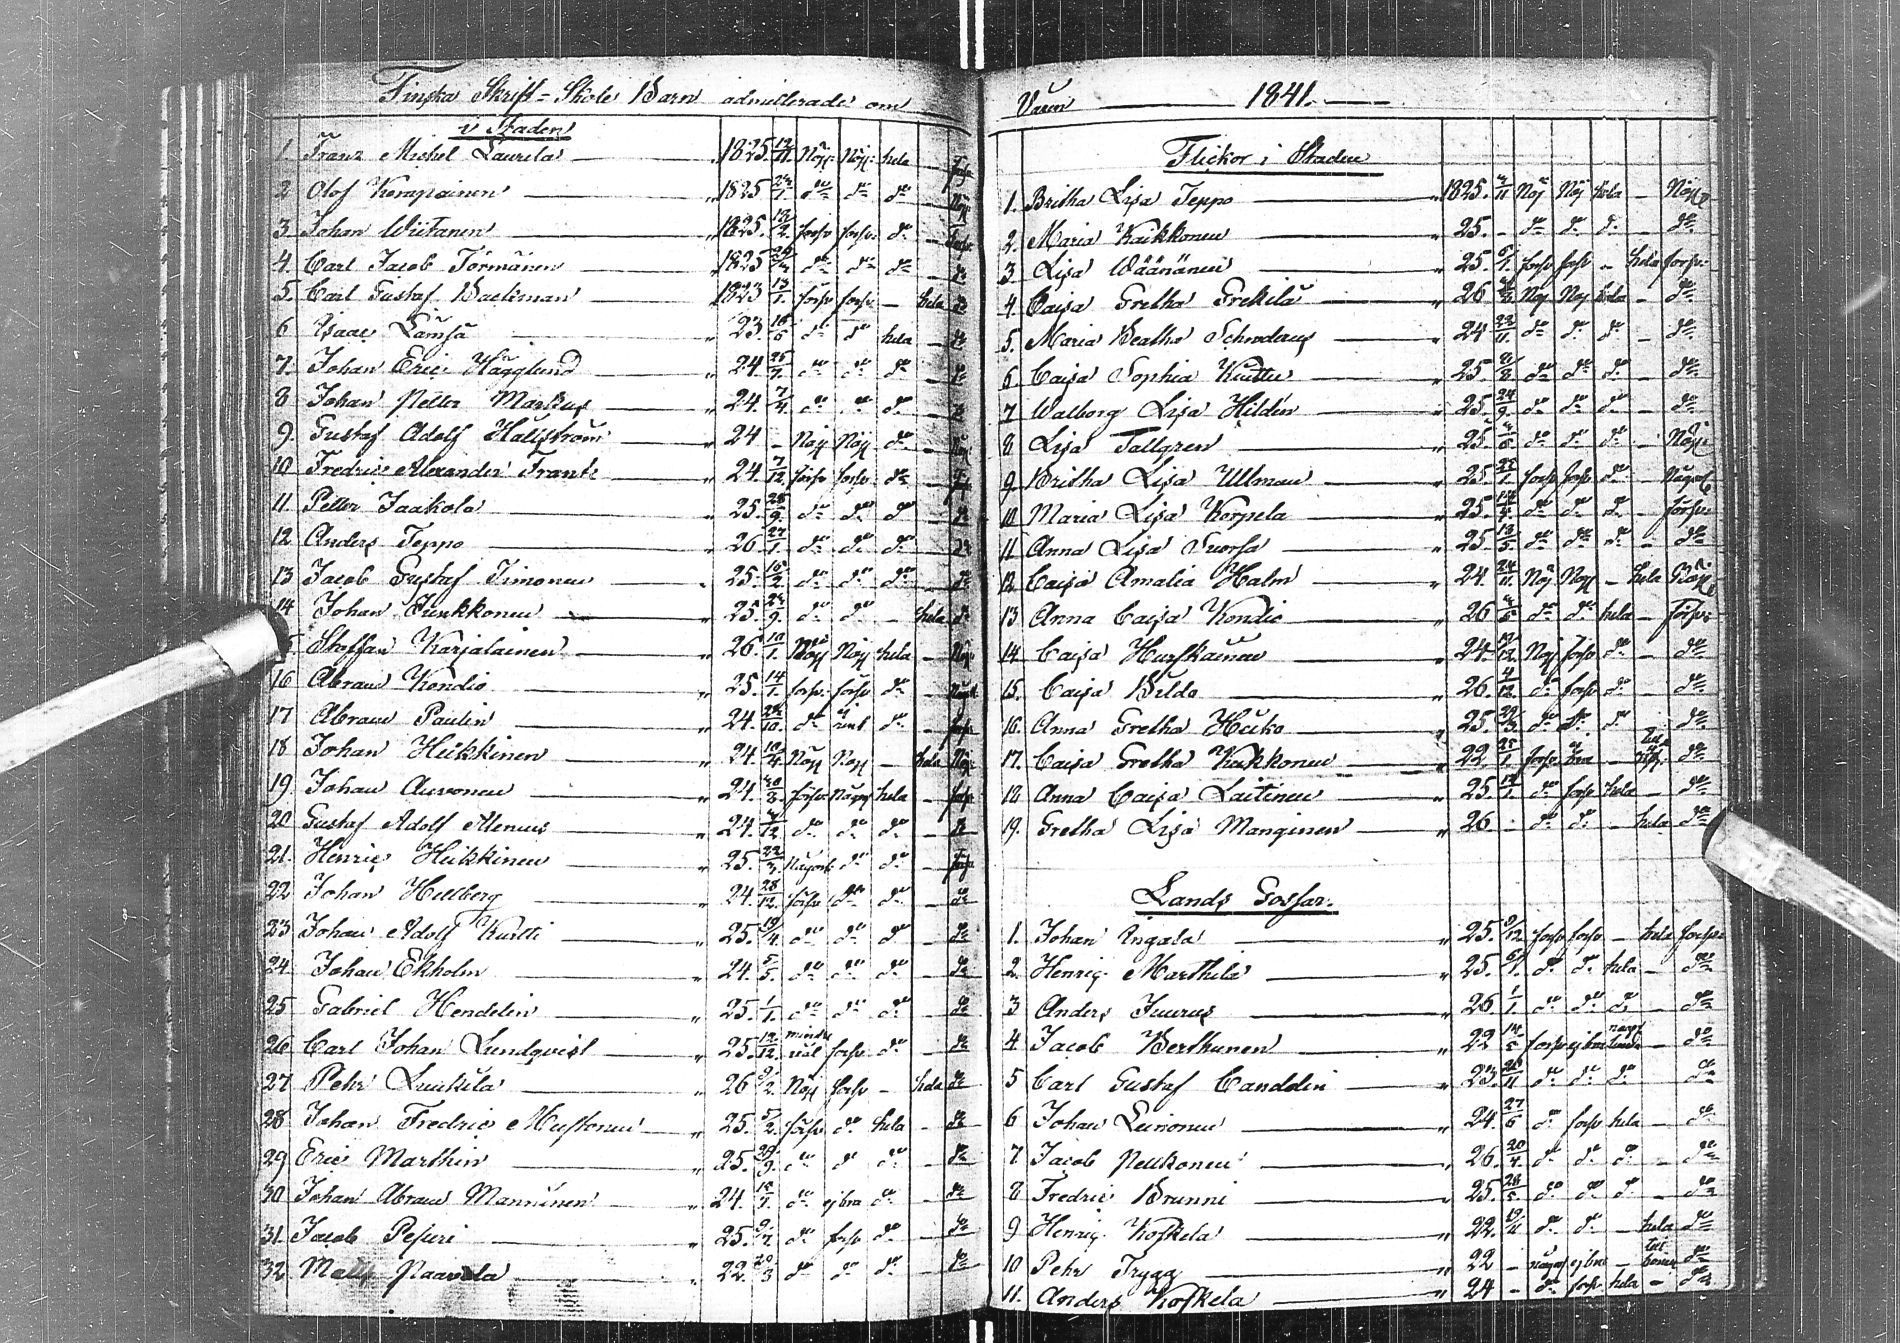 Finska Skrift=Skole Barn admitterade om
i Staden
1. Franz Michel Laurila 1825. 12/11 Nöj: Nöj: hela förs
2 Olof Kempainen 1825 do do do Nöj
3. Johan Wiitanen 1825. förs förs do förs
4. Carl Jacob Törmänen 1825 do do do do
5. Carl Gustaf Backman 1823 13/1. förs förs. – hela do
6 Isaac Lämsä 23. do do hela do
7. Johan Eric Hägglund 24. do do do do
8 Johan Petter Markus 24. 7/4 do do do do
9. Gustaf Adolf Hallström 24 – Nöj Nöj do Nöj
10 Fredric Alexander Frank 24. 7/12. förs förs. do
11 Petter Jaakola 25. 28/9. do do do do
12 Anders Teppo 26. 27/1. do do do do
13 Jacob Gustaf Timonen 25. do do do do
14 Johan Junkkonen 25. do do – hela do
Staffan Karjalainen 26. 10/1. Nöj Nöj hela – Nöj
16 Abram Kondio 25. 14/1. förs. förs do
17 Abram Paulin 24. do do förs
18 Johan Heikkinen 24. 10/4 Nöj Nöj – hela Nöj
19 Johan Auvonen 24. förs någ hela – förs
20 Gustaf Adolf Alenius 24. do do do do
21. Henric Heikkinen 25. 22/3. Någorl: do do förs
22 Johan Hellberg 24. 28/12. förs do do do
23 Johan Adolf Kurtti 25. 19/4. do do do do
24 Johan Ekholm 24. 5/5. do do do do
25 Gabriel Hendelin 25. 1/1. do do do do
26 Carl Johan Lundqvist 25. 12/12. mindre väl förs. do do
27 Pehr Luukila 26 9/2. Nöj förs – hela do
28 Johan Fredric Mustonen 25. 5/2. förs do hela – do
29 Eric Marthin 25. 29/9. do do do do
30 Johan Abram Manninen 24. do ej bra do do
31. Jacob Pesuri 25. do förs do do
32 Matts Paavola 22. 20/3 do do do do
Våren 1841.
Flickor i Staden
1. Britha Lisa Teppo 1825. Nöj Nöj hela – Nöj
2. Maria Kaikkonen 25. – do do do – do
3. Lisa Wäänänen 25. 6/1. förs förs – hela förs:
4. Caisa Gretha Grekilä 26 Nöj Nöj hela – do
5. Maria Beatha Schroderus 24 22/11. do do do – do
6 Caisa Sophia Kurttu 25. do do do – do
7 Walborg Lisa Hildén 25. 24/9. do do do – do
8 Lisa Tallgren 25 do do do – Nöj
9 Britha Lisa Ullman 25. förs förs do – Någorl
10 Maria Lisa Korpela 25. do do do förs:
11 Anna Lisa Suorsa 25. 13/5. do do do – do
12 Caisa Amalia Halm 24. 24/11. Nöj Nöj – hela Nöj
13 Anna Caisa Kondio 26 do do hela – förs:
14 Caisa Hurskainen 24. Nöj förs do – do
15. Caisa Bildo 26. 4/12. do förs do – do
16. Anna Gretha Huiko 25. do do do do
17. Caisa Gretha Kaikkonen 22. 25/1. förs ej bra – do
18 Anna Caisa Laitinen 25. do förs hela – do
19. Gretha Lisa Manginen 26 – do do – hela do
Lands Gossar.
1. Johan Ingala 25. 9/12 förs förs – hela förs:
2. Henric Marttila 25. 6/1. do do hela – do
3 Anders Juurus 26 1/1 do do do do
4. Jacob Kerttunen 22 förs ej bra do
5 Carl Gustaf Canddin 23. do do do do
6 Johan Leinonen 24. 27/6 do förs hela – do
7 Jacob Pellikonen 26. 20/4. do do do – do
8 Fredric Brunni 25. 28/5 do do do – do
9 Henric Koskela 22. 19/11 do do – hela do
10 Pehr Trygg 22 – någorl ej bra – do
11. Anders Koskela 24 – do förs hela – do